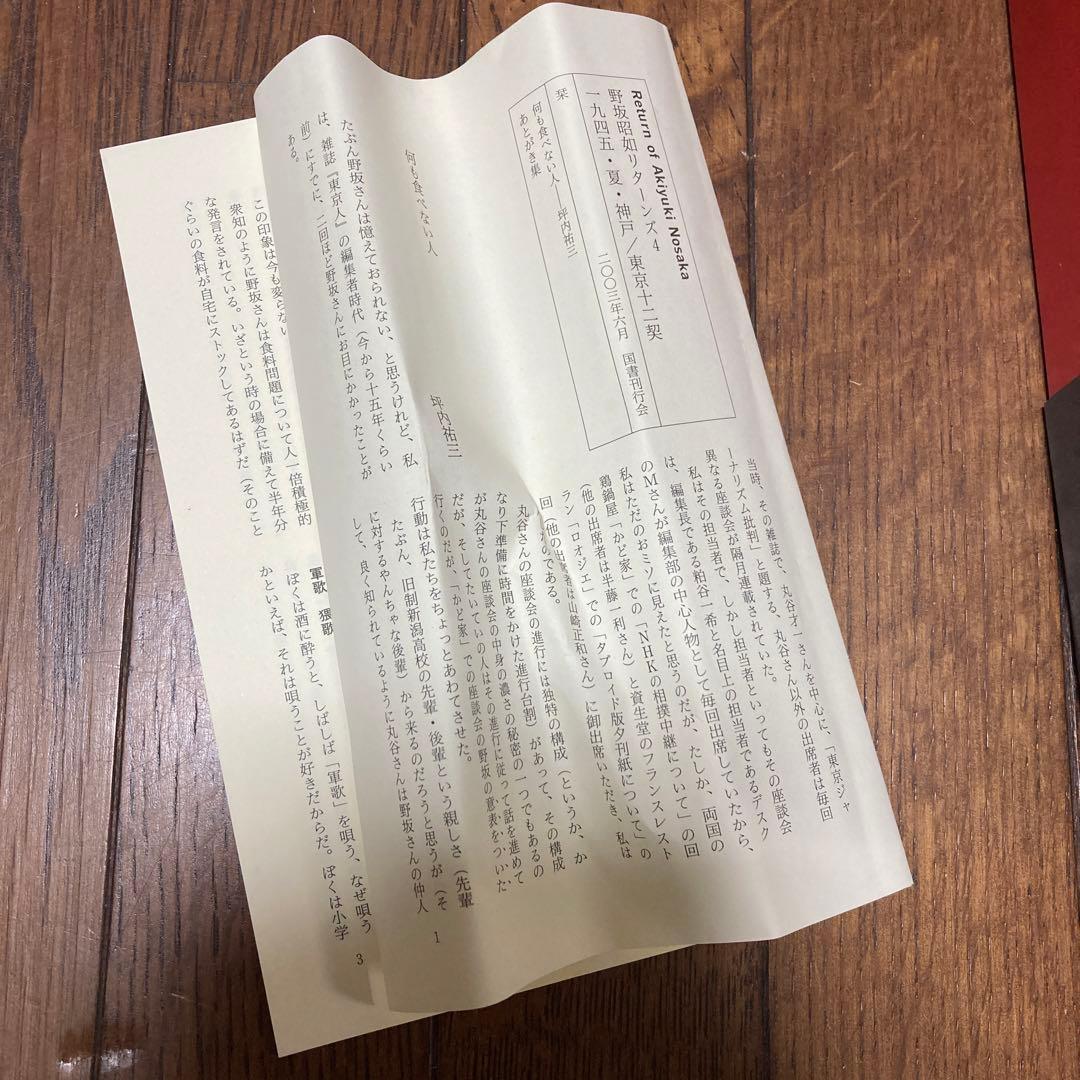 Return of Akiyuki Nosaka
野坂昭如リターンズ4
一九四五・夏・神戸／東京十二契
二〇〇三年六月　国書刊行会
栞
何も食べない人――坪内祐三
あとがき集
何も食べない人
坪内祐三
たぶん野坂さんは憶えておられない、と思うけれど、私
は、雑誌『東京人』の編集者時代（今から十五年くらい
前）にすでに、二回ほど野坂さんにお目にかかったことが
ある。
当時、その雑誌で、丸谷才一さんを中心に、「東京ジャ
ーナリズム批判」と題する、丸谷さん以外の出席者は毎回
異なる座談会が隔月連載されていた。
私はその担当者で、しかし担当者といってもその座談会
は、編集長である粕谷一希と名目上の担当者であるデスク
のMさんが編集部の中心人物として毎回出席していたから、
私はただのおミソに見えたと思うのだが、たしか、両国の
鶏鍋屋「かど家」での「NHKの相撲中継について」の回
（他の出席者は半藤一利さん）と資生堂のフランスレスト
ラン「ロオジエ」での「タブロイド版夕刊紙について」の
回（他の出席者は山崎正和さん）に御出席いただき、私は
たのである。
丸谷さんの座談会の進行には独特の構成（というか、か
なり下準備に時間をかけた進行台割）があって、その構成
が丸谷さんの座談会の中身の濃さの秘密の一つでもあるの
だが、そしてたいていの人はその進行に従って話を進めて
行くのだが、「かど家」での座談会の野坂の意表をついた
行動は私たちをちょっとあわてさせた。
たぶん、旧制新潟高校の先輩・後輩という親しさ（先輩
に対するやんちゃな後輩）から来るのだろうと思うが（そ
して、良く知られているように丸谷さんは野坂さんの仲人
1
この印象は今も変らない
衆知のように野坂さんは食料問題について人一倍積極的
な発言をされている。いざという時の場合に備えて半年分
ぐらいの食料が自宅にストックしてあるはずだ（そのこと
軍歌　猥歌
ぼくは酒に酔うと、しばしば「軍歌」を唄う、なぜ唄う
かといえば、それは唄うことが好きだからだ。ぼくは小学
3